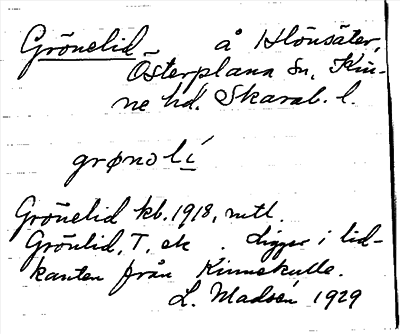 Grönelid - å Hönsäter,
Österplana sn, Kin-
ne hd. Skarab. l.
grønolí
Grönelid kb. 1918, mtl.
Grönlid, T, ek. Ligger i lid-
kanten från Kinnekulle.
L. Madsén 1929